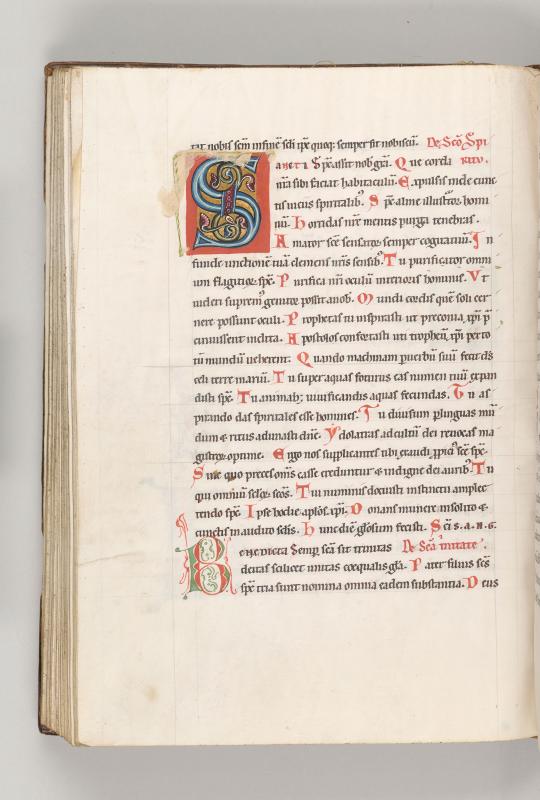 tat nobis scm insine sedi ipe quoq; semper sit nobiscū. De Scō Spi
ancti Spe assit nob gra. Que corda RITV.
nra sibi faciat habitaculū. Expulsis inde cunc
tis uiciis spiritalib. Spe alme illustror homi
nū. Horridas nre mentis purga tenebras.
Amator sce sensator semper cogitatuū. In
funde unctionē tuā clemens nris sensib. Tu purificator omni
um flagitior spe. Purifica nri oculū interioris hominis. Vt
uideri suprem genitor possit anob. Mundi cordis quē soli cer
nere possunt oculi. Prophetas tu inspirasti ut preconia xpi p
cinuissent inclita. Apostolos confortasti uti tropheū xpi per to
tū mundū ueherent. Quando machinam p uerbū suū fecit ds
celi terre mariū. Tu super aquas foturus eas numen tuū expan
disti spe. Tu animab; uiuificandis aquas fecundas. Tu as
pirando das spiritales esse homines. Tu diuisum p linguas mū
dum & ritus adunasti dne. Ydolatras ad cultū dei reuocas ma
gistror optime. Ergo nos supplicantes tibi exaudi ppici sce spe.
Sine quo preces oms casse creduntur & indigne dei aurib. Tu
qui omniū sclor scos. Tui numinis docuisti instinctu amplec
tendo spe. Ipse hodie aplos xpi. Donans munere insolito &
cunctis inaudito sclis. Hunc diem gliosum fecisti. Sci S. A. N. G.
Benedicta Semp scā sit trinitas De Scā Trinitate.
deitas scilicet unitas coequalis gla. Pater filius scs
spe tria sunt nomina omnia eadem substantia. Deus